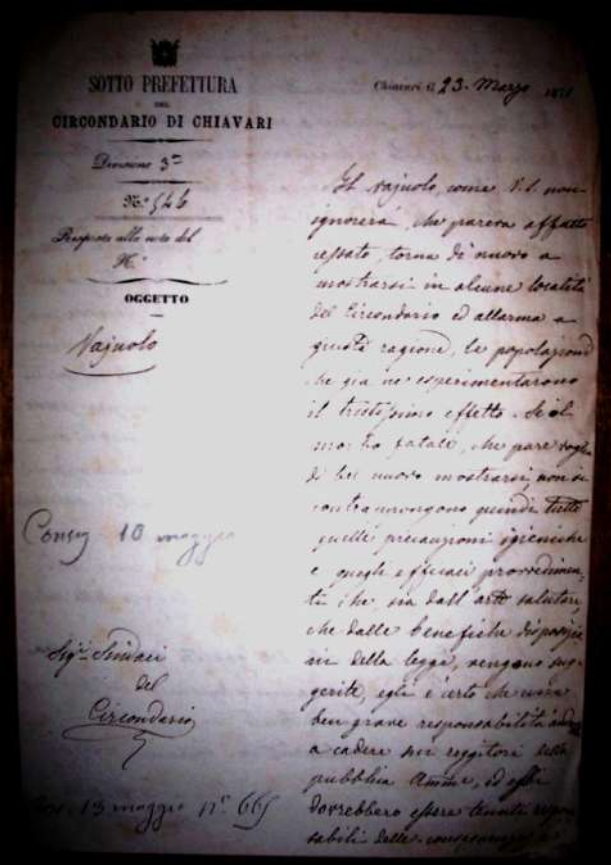 SOTTO PREFETTURA
DEL
CIRCONDARIO DI CHIAVARI
Divisione 3ª
N.° 546
Risposta alla nota del
N.°
OGGETTO
Vajuolo
Consg 10 maggio
Sigri Sindaci
del
Circondario
13 maggio n° 665
Chiavari il 23. Marzo 187
Il vajuolo, come V. S. non
ignorerà, che pareva affatto
cessato, torna di nuovo a
mostrarsi in alcune località
del Circondario ed allarma a
giusta ragione, le popolazioni
che già ne esperimentarono
il tristissimo effetto. Se il
morbo fatale, che pare voglia
di bel nuovo mostrarsi, non si
contrappongono quindi tutte
quelle precauzioni igieniche
e quegli efficaci provvedimen
ti che, sia dall'arte salutare
che dalle benefiche disposizio
ni della legge, vengono sug
gerite, egli è certo che una
ben grave responsabilità
a cadere sui reggitori della
pubblica Amme, ed essi
dovrebbero essere tenuti respon
sabili delle conseguenze